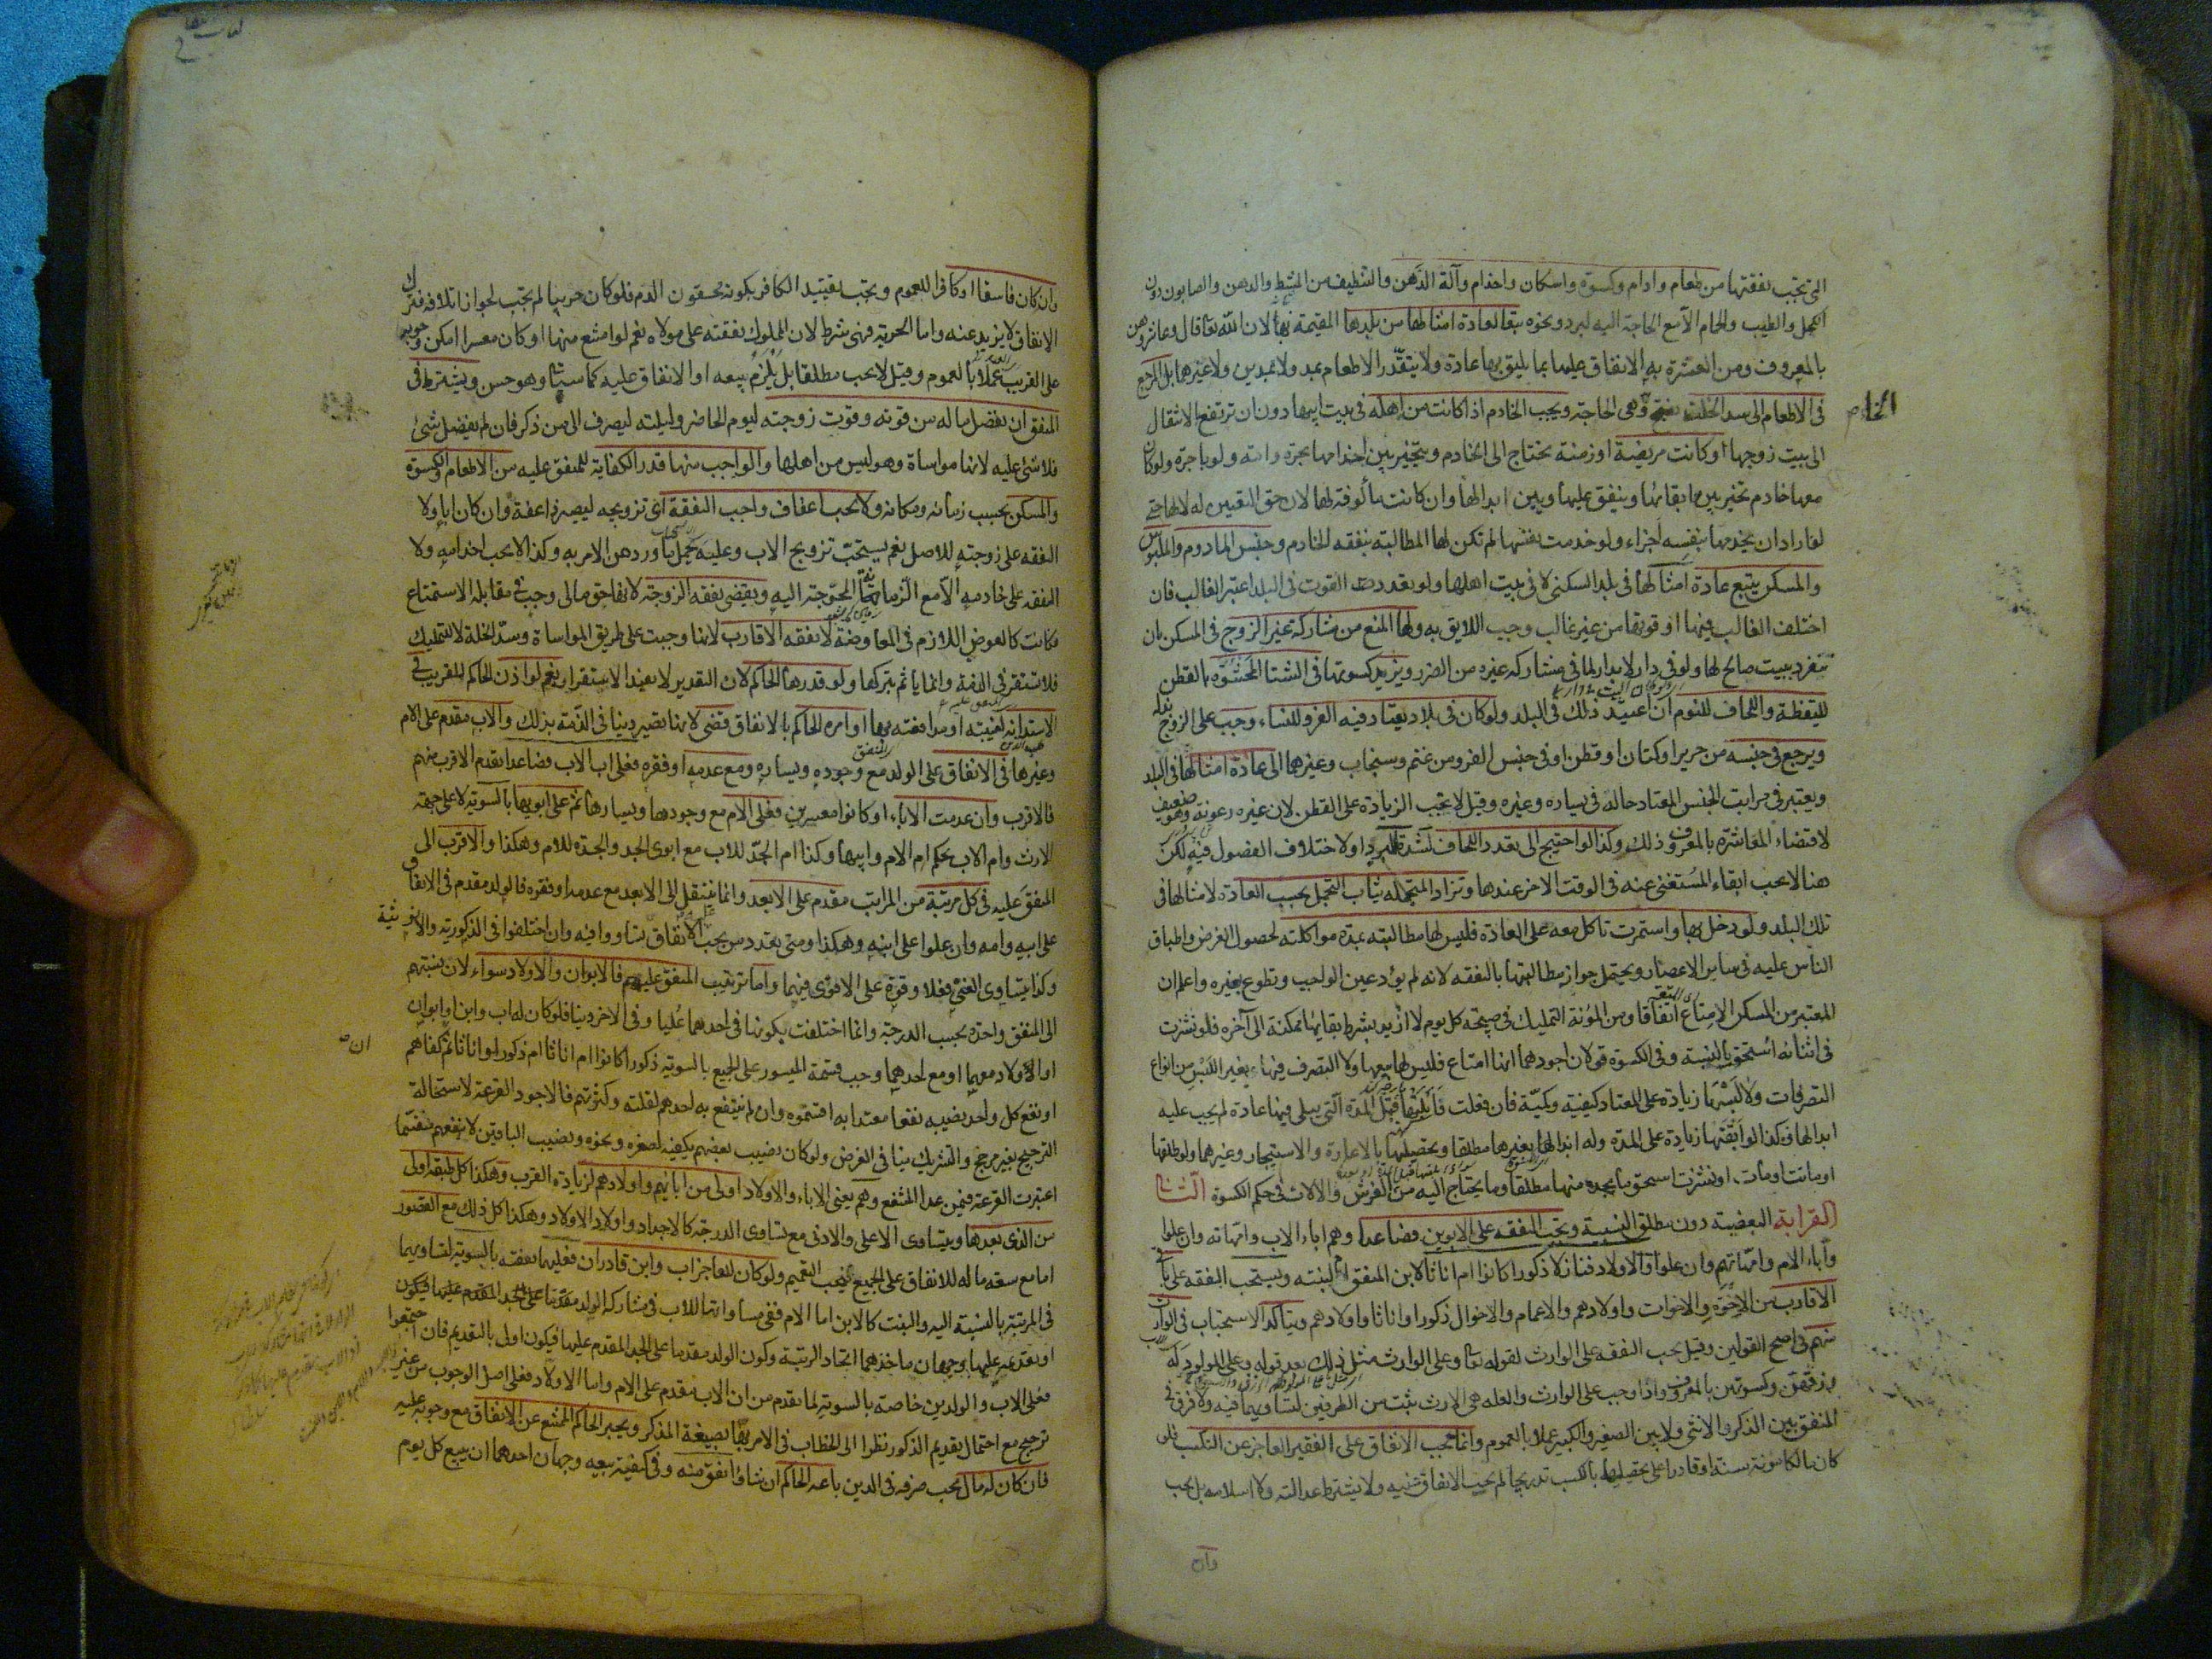 التى تجب نفقتها من طعام وادام وكسوة واسكان واخدام وآلة الدهن والتنظيف من المشط والدهن والصابون دون
الكحل والطيب والحمام الا مع الحاجة اليه لبرد ونحوه تبعا لعادة امثالها من بلدها المقيمة بها لان الله تعا قال وعاشروهن
بالمعروف ومن العشرة به الانفاق عليها بما يليق بها عادة ولا يتقدر الاطعام بمد ولا بمدين ولا غيرها بل المرجع
فى الاطعام الى سد الخلة وهى الحاجة ويجب الخادم اذا كانت من اهله فى بيت ابيها دون ان ترتفع الانتقال
الخادم
الى بيت زوجها او كانت مريضة او زمنة تحتاج الى الخادم ويتخير بين اخدامها بحرة وامة ولو باجرة ولو كان
معها خادم تخير بين ابقائها وينفق عليها وبين ابدالها وان كانت مألوفة لها لان حق التعيين له لا لها حتى
لو اراد ان يخدمها بنفسه اجزاء ولو خدمت نفسها لم تكن لها المطالبة بنفقة الخادم وجنس المادوم والملبوس
والمسكن يتبع عادة امثالها فى بلد السكنى لا فى بيت اهلها ولو تعدد القوت فى البلد اعتبر الغالب فان
اختلف الغالب فيها او قوتها من غير غالب وجب اللايق به ولها المنع من مشاركة غير الزوج فى المسكن بان
تنفرد ببيت صالح لها ولو فى دار لا بدار لما فى مشاركه غيره من الضرر ويزيد كسوتها فى الشتا المحشوة بالقطن
لليقظة واللحاف للنوم ان اعتيد ذلك فى البلد ولو كان فى بلاد يعتاد فيه الفرو للنساء وجب على الزوج بذله
ويرجع فى جنسه من حرير او كتان او قطن او فى جنس الفرو من غنم وسنجاب وغيرها الى عادة امثالها فى البلد
ويعتبر فى مراتب الجنس المعتاد حاله فى يساره وغيره وقيل لا تجب الزيادة على القطن لان غيره رعونة وهو ضعيف
لاقتضاء المعاشرة بالمعروف ذلك وكذا لو احتيج الى تعدد اللحاف لشدة البرد او لاختلاف الفصول فيه لكن
هنا لا يجب ابقاء المستغنى عنه فى الوقت الاخر عندها وتزاد المتجملة ثياب التجمل بحسب العادة لامثالها فى
تلك البلد ولو دخل بها واستمرت تاكل معه على العادة فليس لها مطالبته بمدة مواكلته لحصول الغرض واطباق
الناس عليه فى ساير الاعصار ويحتمل جواز مطالبتها بالنفقه لانه لم يؤد عين الواجب وتطوع بغيره واعلم ان
المعتبر من المسكن الامتاع اتفاقا ومن المؤنة التمليك فى صبيحة كل يوم لا ازيد بشرط بقائها ممكنة الى آخره فلو نشزت
فى اثنائه استحق بالنسبة وفى الكسوة قولان اجودهما انها امتاع فليس لها بيعها ولا التصرف فيها بغير اللبس من انواع
التصرفات ولا لبسها زيادة على المعتاد كيفية وكمية فان فعلت فابلتها قبل المدة التى يبلى فيها عادة لم يجب عليه
ابدالها وكذا لو ابقتها زيادة على المدة وله ابدالها بغيرها مطلقا وتحصيلها بالاعارة والاستيجار وغيرهما ولو طلقها
او ماتت او مات او نشزت استحق ما يجده منها مطلقا وما يحتاج اليه من الفرش والآلات فى حكم الكسوة الثانى
القرابة البعضية دون مطلق النسبة وتجب النفقه على الابوين فصاعدا وهم اباء الاب وامهاته وان علوا
وآباء الام وامهاتهم وان علوا والاولاد فنازلا ذكورا كانوا ام اناثا لابن المنفق ام لبنته ويستحب النفقه على باقى
الاقارب من الاخوة والاخوات واولادهم والاعمام والاخوال ذكورا واناثا واولادهم ويتاكد الاستحباب فى الوارث
منهم فى اصح القولين وقيل يجب النفقه على الوارث لقوله تعا وعلى الوارث مثل ذلك بعد قوله وعلى المولود له
رزقهن وكسوتهن بالمعروف واذا وجب على الوارث والعلة هى الارث ثبت من الطرفين لتساويهما فيه ولا فرق فى
المنفق بين الذكر والانثى ولا بين الصغير والكبير عملا بالعموم وانما يجب الانفاق على الفقير العاجز عن التكسب فلو
كان مالكا مؤنة سنة او قادرا على تحصيلها بالكسب تدريجا لم يجب الانفاق عليه ولا يشترط عدالته ولا اسلامه بل يجب
وان
وان كان فاسقا او كافرا للعموم ويجب تقييد الكافر بكونه محقون الدم فلو كان حربيا لم يجب لجواز اتلافه فترك
الانفاق لا يزيد عنه واما الحرية فهى شرط لان المملوك نفقته على مولاه نعم لو امتنع منها او كان معسرا امكن وجوبه
على القريب عملا بالعموم وقيل لا يجب مطلقا بل يلزم ببيعه او الانفاق عليه كما سيأتى وهو حسن ويشترط فى
المنفق ان يفضل ماله من قوته وقوت زوجته ليوم الحاضر وليلته ليصرف الى من ذكر فان لم يفضل شئ
فلا شئ عليه لانها مواساة وهو ليس من اهلها والواجب منها قدر الكفاية للمنفق عليه من الاطعام والكسوة
والمسكن بحسب زمانه ومكانه ولا يجب اعفاف واجب النفقة اى تزويجه ليصير ذا عفة وان كان ابا ولا
النفقه على زوجته للاصل نعم يستحب تزويج الاب وعليه يحمل ما ورد من الامر به وكذا لا يجب اخدامه ولا
النفقه على خادمه الا مع الزمانة المحوجة اليه ويقضى نفقه الزوجة لانها حق مالى وجب فى مقابله الاستمتاع
فكانت كالعوض اللازم فى المعاوضة لا نفقه الاقارب لانها وجبت على طريق المواساة وسد الخلة لا التمليك
فلا تستقر فى الذمة وانما يأثم بتركها ولو قدرها الحاكم لان التقدير لا يفيد الاستقرار نعم لو اذن الحاكم للقريب فى
الاستدانة لغيبته او مدافعته بها او امره الحاكم بالانفاق قضى لانها تصير دينا فى الذمة بذلك والاب مقدم على الام
وغيرها فى الانفاق على الولد مع وجوده ويساره ومع عدمه او فقره فعلى اب الاب فصاعدا تقدم الاقرب منهم
فالاقرب وان عدمت الاباء او كانوا معسرين فعلى الام مع وجودها ويسارها ثم على ابويها بالسوية لا على جهة
الارث وام الاب بحكم ام الام وابيها وكذا ام الجد للاب مع ابوى الجد والجدة للام وهكذا والاقرب الى
المنفق عليه فى كل مرتبة من المراتب مقدم على الابعد وانما ينتقل الى الابعد مع عدمه او فقره فالولد مقدم فى الانفاق
على ابيه وامه وان علوا على ابنه وهكذا ومتى تعدد من يجب عليه الانفاق تساووا فيه وان اختلفوا فى الذكورية والانوثية
وكذا يتساوى الغنى فعلا وقوة على الاقوى فيهما واما ترتيب المنفق عليهم فالابوان والاولاد سواء لان نسبتهم
الى المنفق واحدة بحسب الدرجة وانما اختلفت بكونها فى احدهما عليا وفى الاخر دنيا فلو كان له اب وابن او ابوان
او الاولاد معهما او مع احدهما وجب قسمة الميسور على الجميع بالسوية ذكورا كانوا ام اناثا ام ذكورا واناثا ثم ان كفاهم
او نفع كل واحد نصيبه نفعا معتدا به اقتسموه وان لم ينتفع به احدهم لقلته وكثرتهم فالاجود القرعة لاستحالة
الترجيح بغير مرجح والتشريك ينافى الغرض ولو كان نصيب بعضهم يكفيه لصغره ونحوه ونصيب الباقين لا ينفعهم منقسما
اعتبرت القرعة فيمن عدا المنتفع وهم يعنى الاباء والاولاد اولى من آبائهم واولادهم لزيادة القرب وهكذا كل طبقه اولى
من التى بعدها ويتساوى الاعلى والادنى مع تساوى الدرجة كالاجداد واولاد الاولاد وهكذا كل ذلك مع القصور
اما مع سعة ماله للانفاق على الجميع فيجب التعميم ولو كان للعاجز اب وابن قادران فعليهما نفقته بالسوية لتساويهما
فى المرتبة بالنسبة اليه والبنت كالابن اما الام ففى مساواتها للاب فى مشاركة الولد
او تقدمه عليها وجهان ماخذهما اتحاد الرتبة وكون الولد مقدما على الجد المقدم عليها فيكون اولى بالتقديم فان اجتمعوا
فعلى الاب والولدين خاصة بالسوية لما تقدم من ان الاب مقدم على الام واما الاولاد فعلى اصل الوجوب من غير
ترجيح مع احتمال تقديم الذكور نظرا الى الخطاب فى الامر بها بصيغة المذكر ويجبر الحاكم الممتنع عن الانفاق مع وجوبه عليه
فان كان له مال يجب صرفه فى الدين باعه الحاكم ان شاء وانفق منه وفى كيفية بيعه وجهان احدهما ان يبيع كل يوم